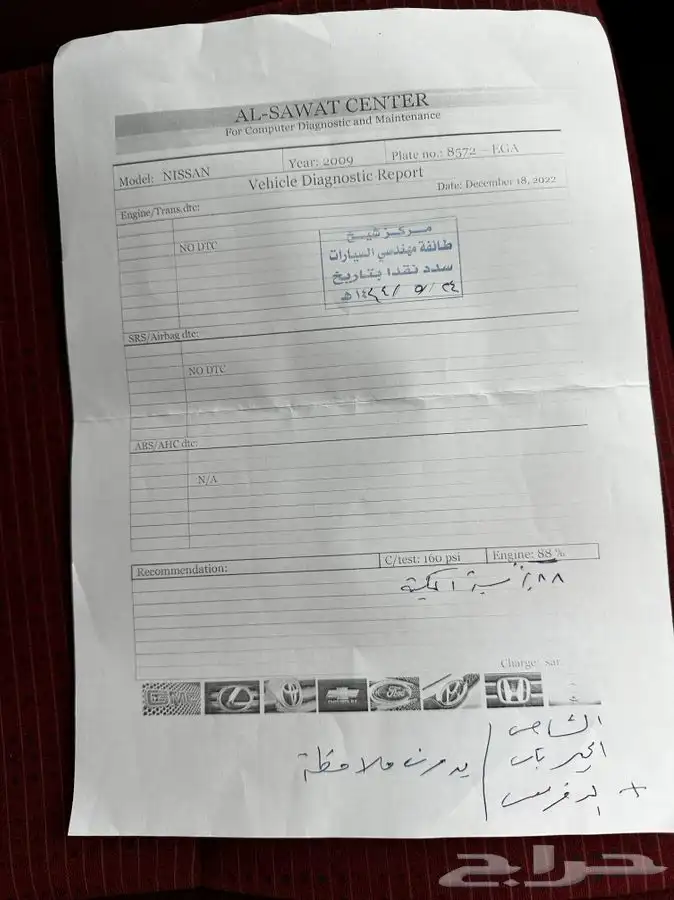 AL-SAWAT CENTER
For Computer Diagnostic and Maintenance
Model: NISSAN Year: 2009 Plate no.: 8572 – EGA
Vehicle Diagnostic Report
Date: December 18, 2022
Engine/Trans.dtc:
NO DTC
مركز شيخ
طائفة مهندسي السيارات
سدد نقدا بتاريخ
٢٤ / ٥ / ١٤٤٤هـ
SRS/Airbag dtc:
NO DTC
ABS/AHC dtc:
N/A
Recommendation: C/test: 160 psi Engine: 88 %
٨٨٪ نسبة المكينة
Charge: sar.
GMC
CHEVROLET
Ford
الشاصي
الجير باك
+ الدفرنس
بدون ملاحظة
حراج